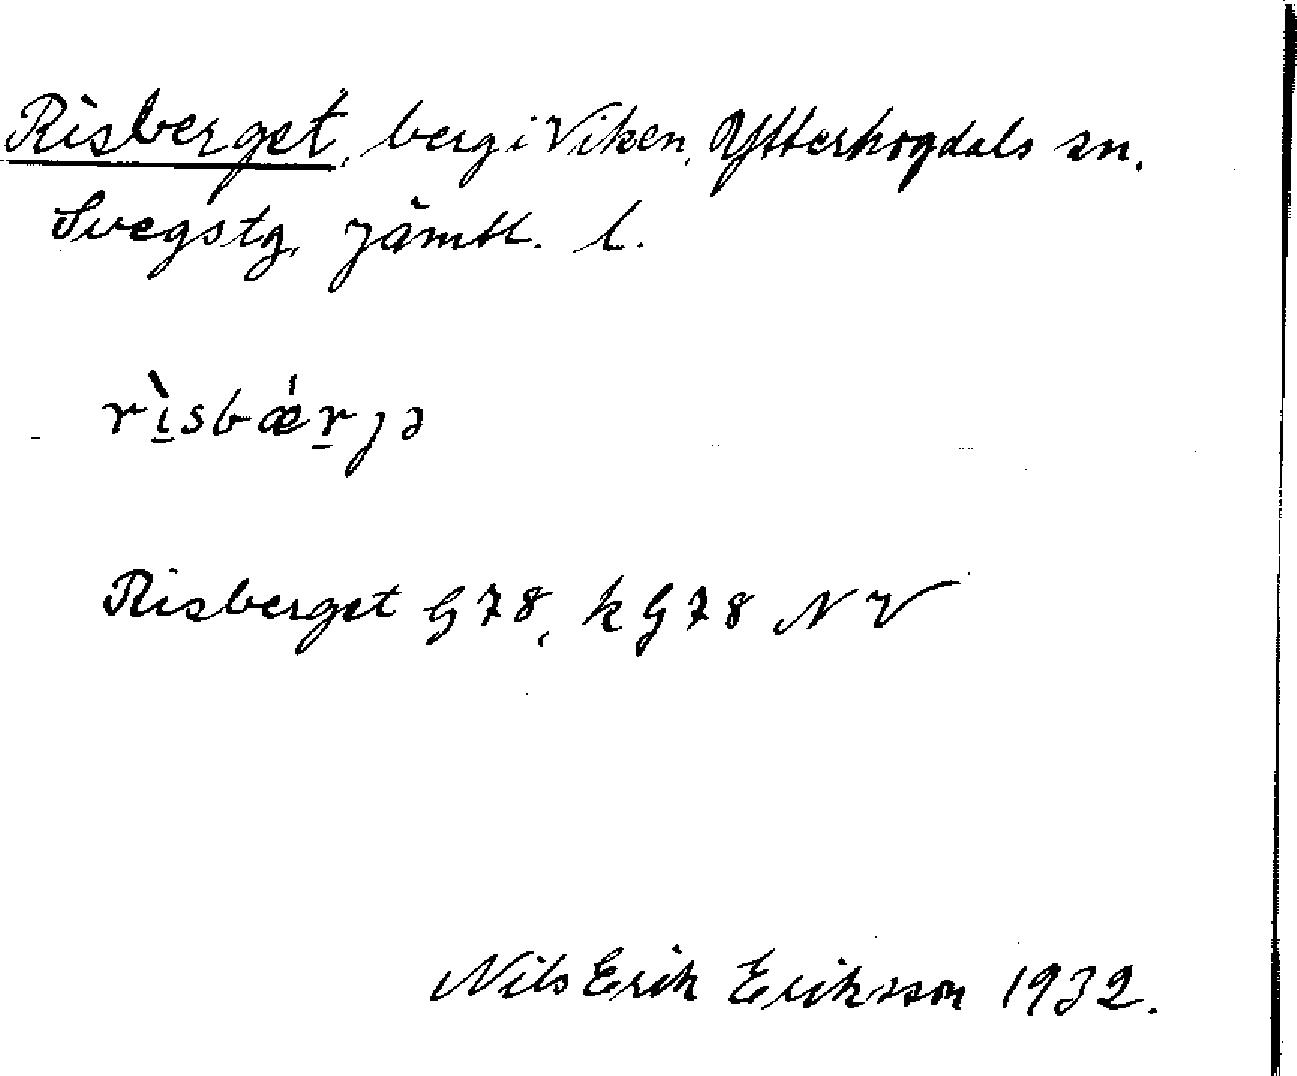 Risberget, berg i Viken, Ytterhogdals sn.
Svegstg, Jämtl. l.
rìsbǽrɟə
Risberget G78, k G78 NV
Nils Erik Eriksson 1932.